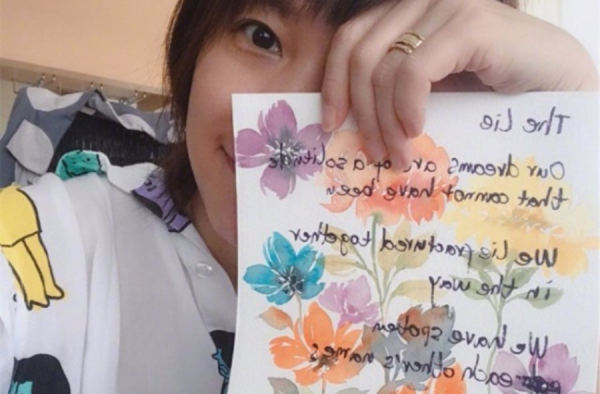 The Lie
Our dreams are of a solitude
that cannot have been
We lie fractured together
in the way
We have spoken
each other's names